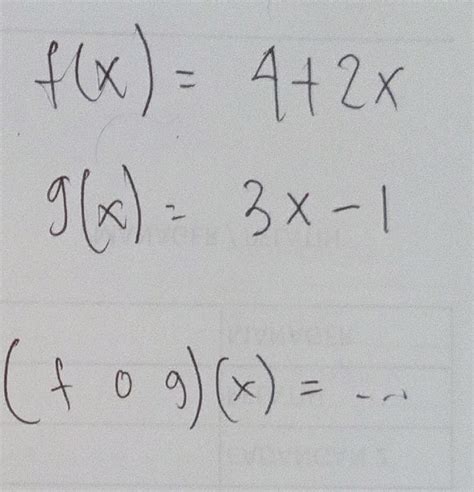 f(x) = 4+2x
g(x) = 3x-1
(f o g)(x) = ...